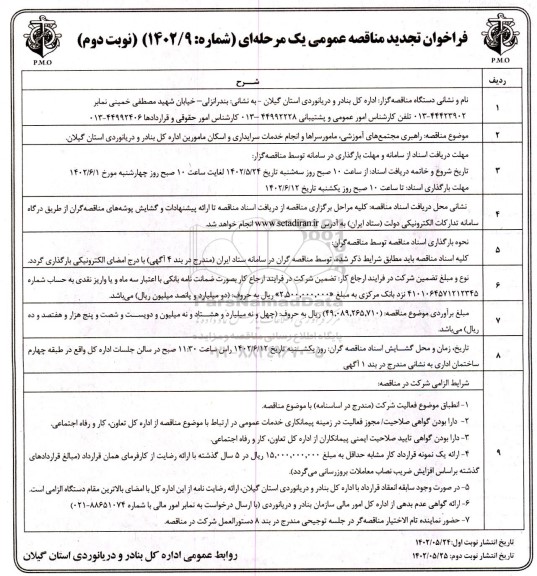 فراخوان تجدید مناقصه عمومی یک مرحله‌ای (شماره: ۱۴۰۲/۹) (نوبت دوم)
P.M.O
P.M.O
ردیف
شرح
۱
نام و نشانی دستگاه مناقصه‌گزار: اداره کل بنادر و دریانوردی استان گیلان - به نشانی: بندرانزلی- خیابان شهید مصطفی خمینی نمابر
۴۴۴۲۳۹۰۲-۰۱۳ تلفن کارشناس امور عمومی و پشتیبانی ۴۴۹۹۲۲۲۸-۰۱۳ کارشناس امور حقوقی و قراردادها ۴۴۹۹۲۴۰۶-۰۱۳
۲
موضوع مناقصه: راهبری مجتمع‌های آموزشی، مامورسراها و انجام خدمات سرایداری و اسکان مامورین اداره کل بنادر و دریانوردی استان گیلان.
۳
مهلت دریافت اسناد از سامانه و مهلت بارگذاری در سامانه توسط مناقصه‌گزار:
تاریخ شروع و خاتمه دریافت اسناد: از ساعت ۱۰ صبح روز سه‌شنبه تاریخ ۱۴۰۲/۵/۲۴ لغایت ساعت ۱۰ صبح روز چهارشنبه مورخ ۱۴۰۲/۶/۱
مهلت بارگذاری اسناد: تا ساعت ۱۰ صبح روز یکشنبه تاریخ ۱۴۰۲/۶/۱۲
۴
نشانی محل دریافت اسناد مناقصه: کلیه مراحل برگزاری مناقصه از دریافت اسناد مناقصه تا ارائه پیشنهادات و گشایش پوشه‌های مناقصه‌گران از طریق درگاه
سامانه تدارکات الکترونیکی دولت (ستاد ایران) به آدرس www.setadiran.ir انجام خواهد شد.
۵
نحوه بارگذاری اسناد مناقصه توسط مناقصه‌گران:
کلیه اسناد مناقصه باید مطابق شرایط ذکر شده، توسط مناقصه گران در سامانه ستاد ایران (مندرج در بند ۴ آگهی) با درج امضای الکترونیکی بارگذاری گردد.
۶
نوع و مبلغ تضمین شرکت در فرایند ارجاع کار: تضمین شرکت در فرایند ارجاع کار بصورت ضمانت نامه بانکی با اعتبار سه ماه و یا واریز نقدی به حساب شماره
۴۱۰۱۰۶۴۵۷۱۲۱۲۳۴۵ نزد بانک مرکزی به مبلغ ۲،۵۰۰،۰۰۰،۰۰۰ ریال به حروف: (دو میلیارد و پانصد میلیون ریال) می‌باشد.
۷
مبلغ برآوردی موضوع مناقصه: (۴۹،۰۸۹،۲۶۵،۷۱۰) ریال به حروف: (چهل و نه میلیارد و هشتاد و نه میلیون و دویست و شصت و پنج هزار و هفتصد و ده
ریال) می‌باشد.
۸
تاریخ، زمان و محل گشایش اسناد مناقصه گران: روز یکشنبه تاریخ ۱۴۰۲/۶/۱۲ راس ساعت ۱۱:۳۰ صبح در سالن جلسات اداره کل واقع در طبقه چهارم
ساختمان اداری به نشانی مندرج در بند ۱ آگهی
۹
شرایط الزامی شرکت در مناقصه:
۱- انطباق موضوع فعالیت شرکت (مندرج در اساسنامه) با موضوع مناقصه.
۲- دارا بودن گواهی صلاحیت/ مجوز فعالیت در زمینه پیمانکاری خدمات عمومی در ارتباط با موضوع مناقصه از اداره کل تعاون، کار و رفاه اجتماعی.
۳- دارا بودن گواهی تایید صلاحیت ایمنی پیمانکاران از اداره کل تعاون، کار و رفاه اجتماعی.
۴- ارائه یک نمونه قرارداد کار مشابه حداقل به مبلغ ۱۵,۰۰۰,۰۰۰,۰۰۰ ریال در ۵ سال گذشته با ارائه رضایت از کارفرمای همان قرارداد (مبالغ قراردادهای
گذشته براساس افزایش ضریب نصاب معاملات بروزرسانی می‌گردد).
۵- در صورت وجود سابقه انعقاد قرارداد با اداره کل بنادر و دریانوردی استان گیلان، ارائه رضایت نامه از این اداره کل با امضای بالاترین مقام دستگاه الزامی است.
۶- ارائه گواهی عدم بدهی از اداره کل امور مالی سازمان بنادر و دریانوردی (با ارسال درخواست به نمابر امور مالی با شماره ۸۸۶۵۱۰۷۴-۰۲۱)
۷- حضور نماینده تام الاختیار مناقصه‌گر در جلسه توجیهی مندرج در بند ۸ دستورالعمل شرکت در مناقصه.
تاریخ انتشار نوبت اول: ۱۴۰۲/۰۵/۲۴
تاریخ انتشار نوبت دوم: ۱۴۰۲/۰۵/۲۵
روابط عمومی اداره کل بنادر و دریانوردی استان گیلان